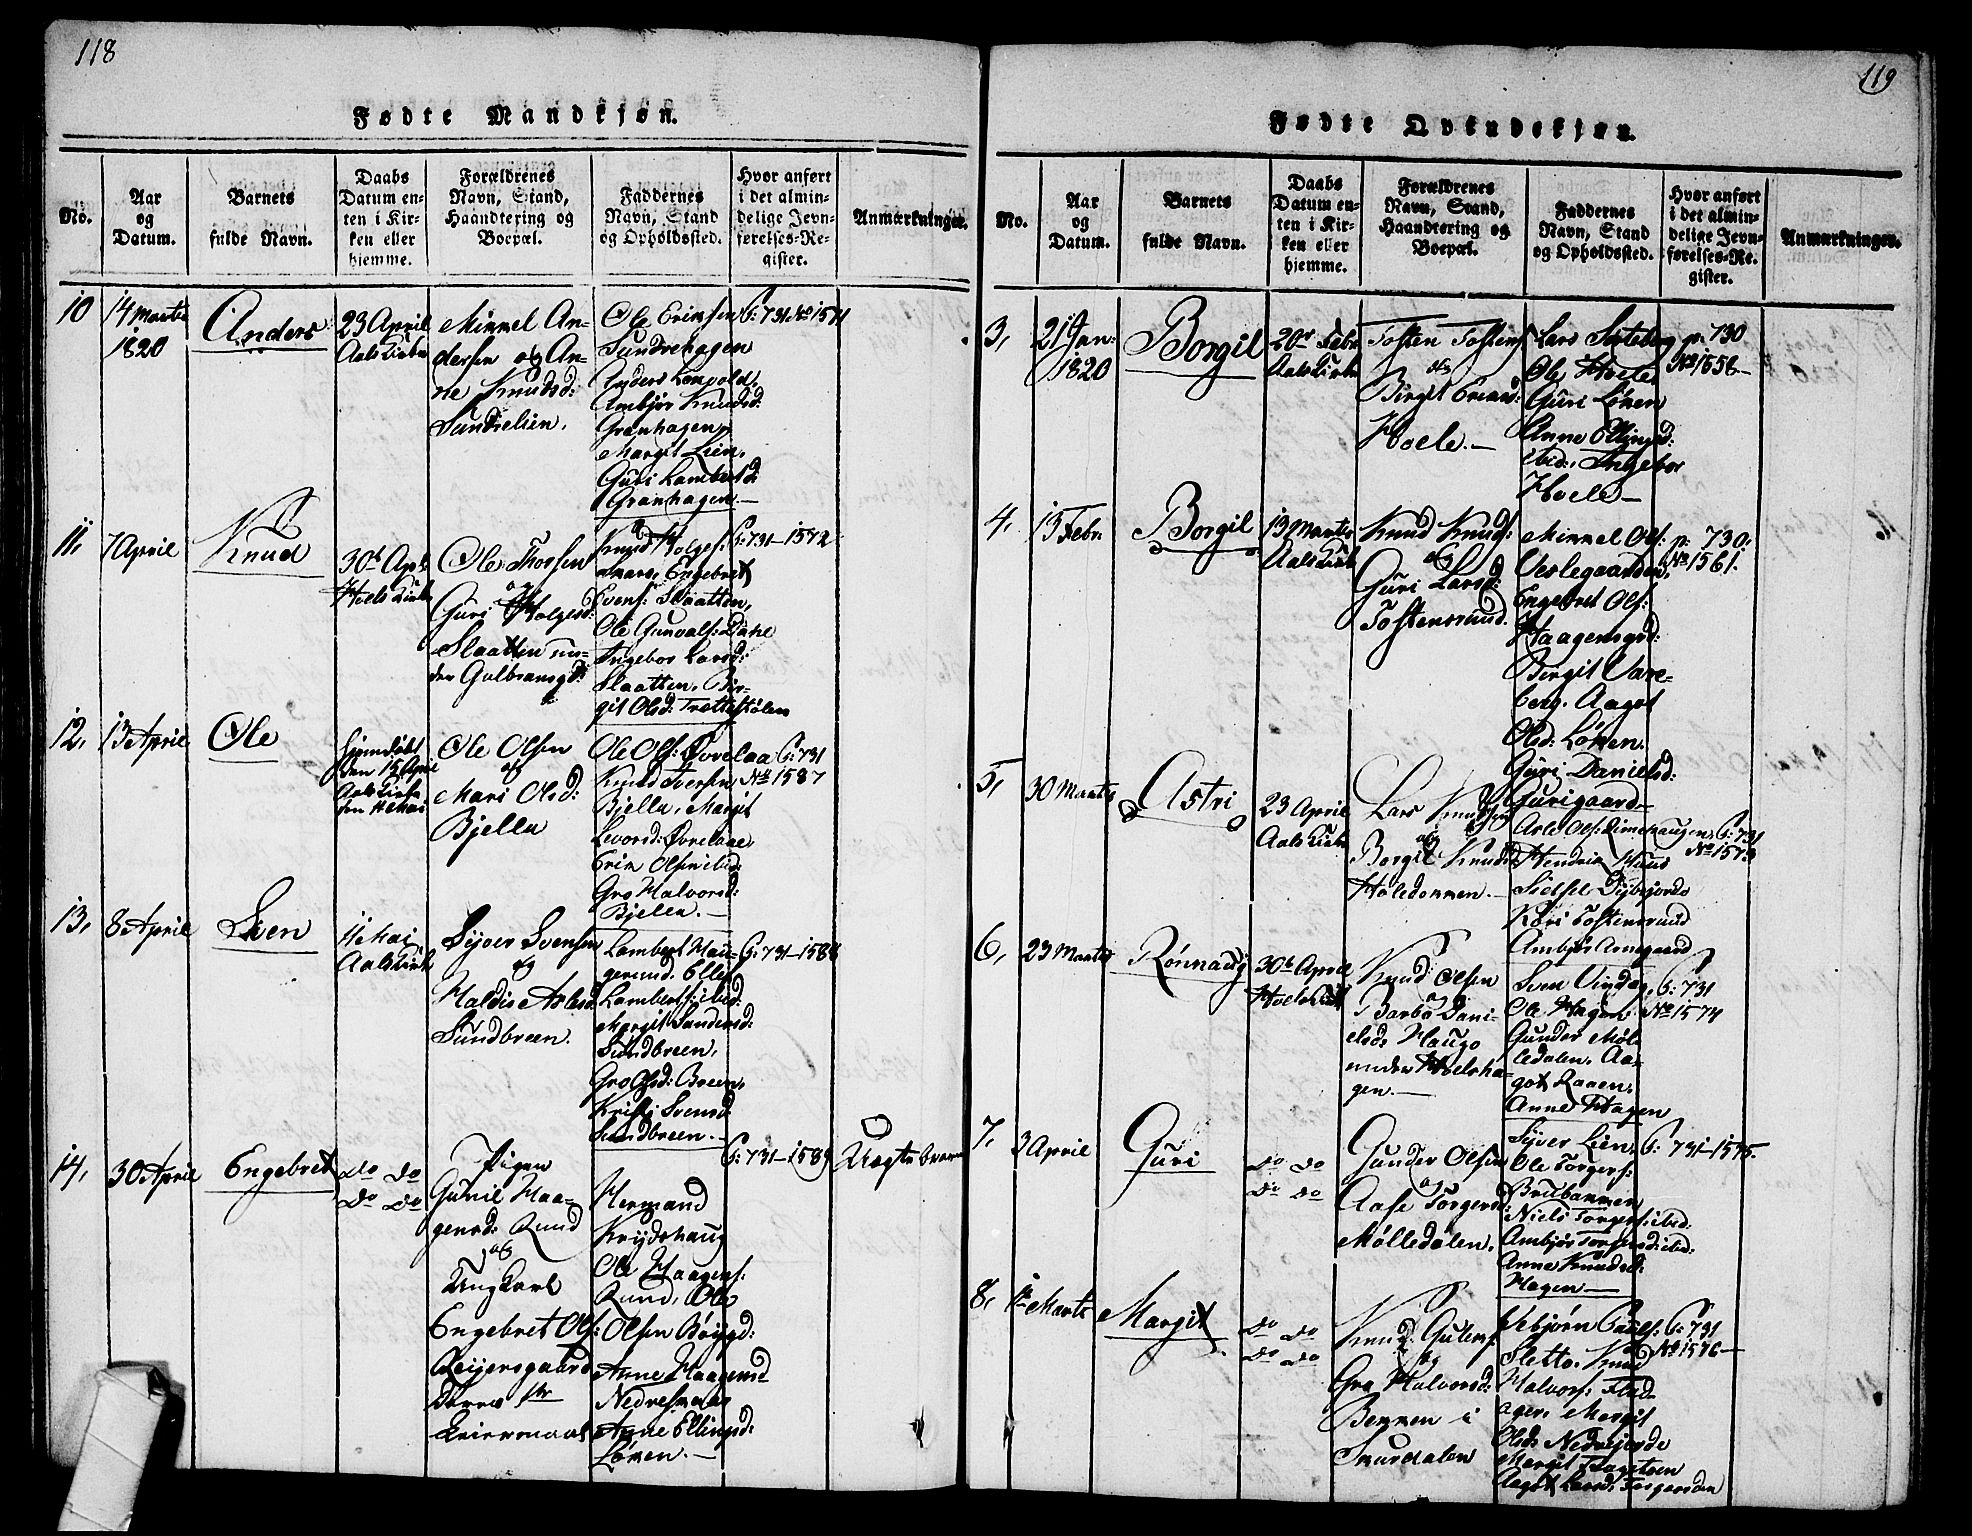 118
Fødte Mandkjøn.
No.
Aar
og
Datum.
Barnets
fulde Navn.
Daabs
Datum en-
ten i Kir-
ken eller
hjemme.
Forældrenes
Navn, Stand,
Haandtering og
Boepæl.
Faddernes
Navn, Stand
og Opholdssted.
Hvor anført
i det almin-
delige Jevn-
førelses-Re-
gister.
Anmærkninger.
10
14 Martii
1820
Anders
23 April
Aals Kirke
Mikkel An-
dersen og An-
ne Knudsd:
Sundrelien.
Ole Eriksen
Sundrehagen
Anders Leopold,
Ambjør Knudsd:
Granhagen,
Margit Lien,
Guri Lambertsd:
Granhagen.—
P: 731 No 1571
11,
7 April
Knud
30te Apr:
Hoels Kirke
Ole Thorsen
og
Guri Holgersd:
Slaatten un-
der Gulbransgd:
Knud Holgers:
Engebret
Evens: Slaatten,
Ole Gunvals: Dahl
Ingebor Larsd:
Slaatten, Bir-
git Olsd: Trettestølen
P: 731–1572
12,
13 April
Ole
hjemdøbt
den 15 April
Aals Kirke
den 11 Mai
Ole Olsen
og
Mari Olsd:
Bjella
Ole Ols: Øvrelaa
Knud Iversen
Bjella, Margit
Levorsd: Øvrelaae
Erik Olsen ibid:
Gro Halvorsd:
Bjella.—
P: 731
No 1587
13,
8 April
Sven
11 Mai
Aals Kirk
Syver Svensen
og
Haldis Aslesd:
Sundbreen.
Lambert Hau-
gerud, Elle
Lamberts: ibid:
Margit Sandersd:
Sundbreen,
Gro Olsd: Breen,
Kristi Svensd
Sundbreen.—
P: 731–1588
14,
30 April
Engebret
Do Do
Do Do
Pigen
Gunil Haa-
gensd: Ruud
og
Ungkarl
Engebret Ols:
Reijersgaard
Hermand
Krydshaug
Ole Haagens:
Ruud, Ole
Olsen Bøygd:
Anne Haagensd
Nedresmaas
Anne Ellingsd:
Løken.—
P: 731–1589
Uægte barn
119
Fødte Qvindekjøn.
No.
Aar
og
Datum.
Barnets
fulde Navn.
Daabs
Datum en-
ten i Kir-
ken eller
hjemme.
Forældrenes
Navn, Stand,
Haandtering og
Boepæl.
Faddernes
Navn, Stand
og Opholdssted.
Hvor anført
i det almin-
delige Jevn-
førelses-Re-
gister.
Anmærkninger.
3,
21 Jan:
1820
Borgil
20de Febr
Aals Kirke
Tosten Tostens:
og
Birgit Eriksd:
Hoele.—
Lars Sateberg
Ole Hoele,
Guri Løken
Anne Ellingsd:
ibid:, Ingebor
Hoele—
p: 730
No 1558—
4,
13 Febr:
Borgil
13 Martii
Aals Kirk
Knud Knuds:
og
Guri Larsd:
Tostensrud.
Mikkel Ols:
Veslegaarden,
Engebret Ols:
Haagensgd:
Birgit Vare-
berg, Aagot
Olsd: Løken.
Guri Danielsd:
Gurigaard—
p: 730,
No 1561.
5,
30 Martii
Astri
23 April
Aals Kirk
Lars Knudsen
og
Borgil Knudsd
Holedokken.—
Asle Ols: Rimehaugen,
Hendrik Huus
Sidsel Dybesjords
Kari Tostensrud
Ambjør Arnegaard
P: 731
No 1573
6,
23 Martii
Rønnaug
30te April
Hoels Kirk
Knud Olsen
og
Barbo Dani-
elsd: Haugo
under Hoelsha-
gen.—
Sven Vindeg,
Ole Hagen,
Gunder Møl-
ledalen, Aa-
got Raaen,
Anne Hagen
P: 731
No 1574
7,
3 April
Guri
Do Do
Do Do
Gunder Olsen
og
Aase Torgersd:
Mølledalen.
Syver Lien,
Ole Torgers:
Brubakken
Niels Torgers: ibid:
Ambjør Torgersd: ibid:
Anne Knudsd:
Hagen—
P: 731–1575.
8,
1te Martii
Margit
Do Do
Do Do
Knud Guters:
og
Gro Halvorsd:
Bekken i
Skurdalen
Vebjørn Pauls:
Sletto, Knud
Halvors: Flad-
ager, Margit
Olsd: Nedrejorde
Margit
Aagot Larsd:
P: 731
No 1576—